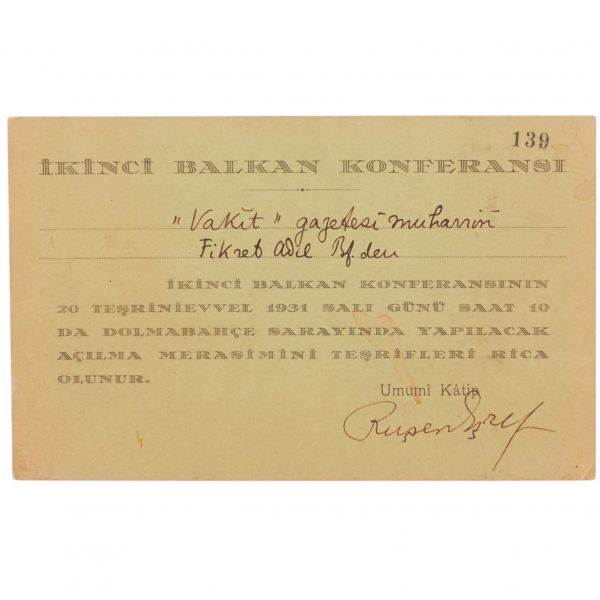 139
İKİNCİ BALKAN KONFERANSI
"Vakit" gazetesi muharriri
Fikret Adil Bf. den
İKİNCİ BALKAN KONFERANSININ
20 TEŞRİNİEVVEL 1931 SALI GÜNÜ SAAT 10
DA DOLMABAHÇE SARAYINDA YAPILACAK
AÇILMA MERASİMİNİ TEŞRİFLERİ RİCA
OLUNUR.
Umumî Kâtip
Ruşen Eşref